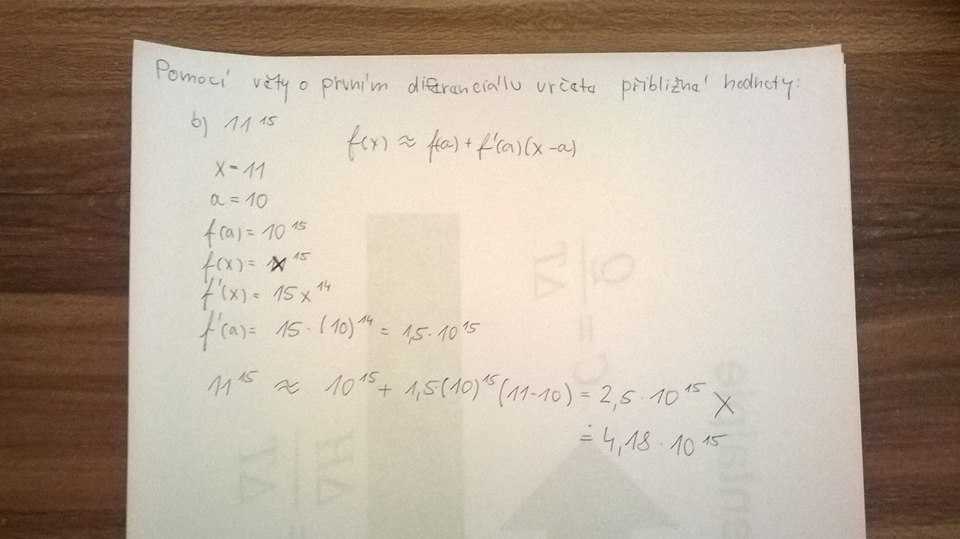 Pomocí věty o prvním diferenciálu určete přibližné hodnoty:
b) 11^15
f(x) ≈ f(a) + f'(a)(x-a)
x = 11
a = 10
f(a) = 10^15
f(x) = x^15
f'(x) = 15x^14
f'(a) = 15 · (10)^14 = 1,5 · 10^15
11^15 ≈ 10^15 + 1,5(10)^15 (11-10) = 2,5 · 10^15 X
≐ 4,18 · 10^15